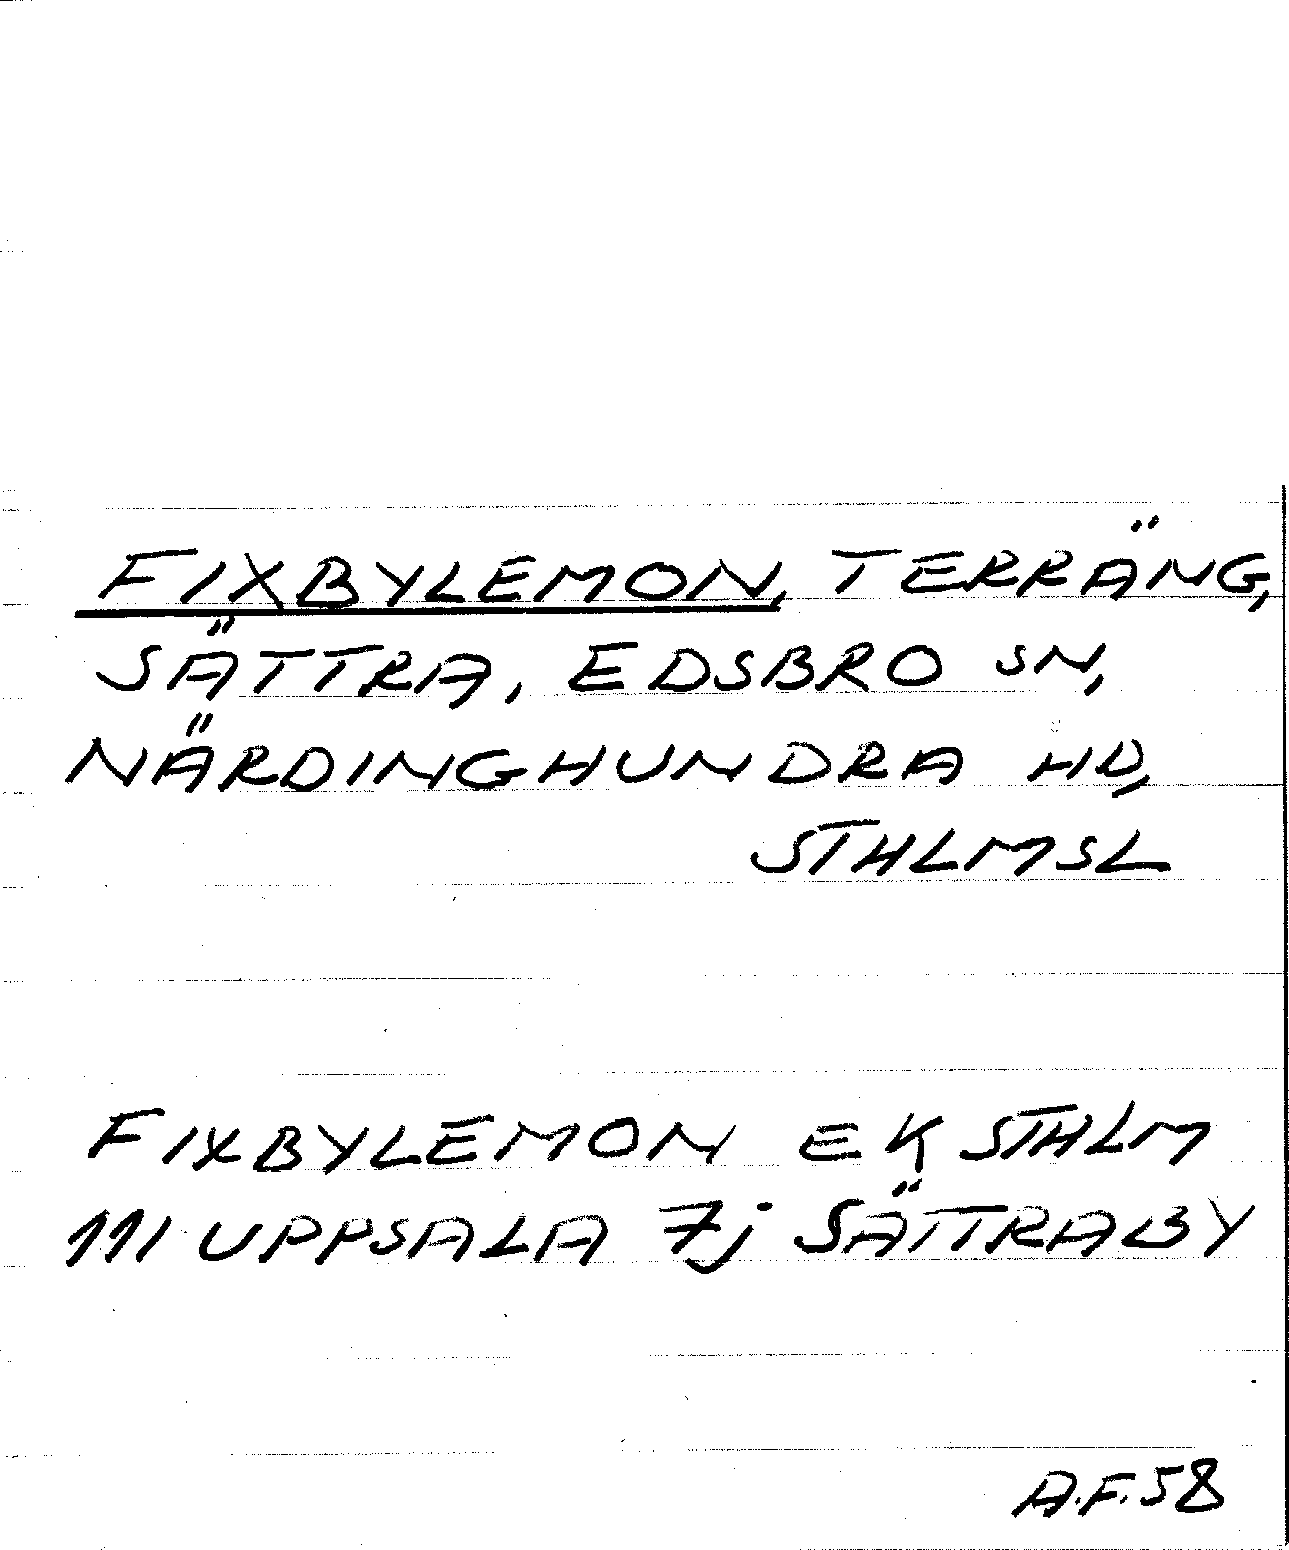 FIXBYLEMON, TERRÄNG,
SÄTTRA, EDSBRO SN,
NÄRDINGHUNDRA HD,
STHLMSL
FIXBYLEMON EK STHLM
111 UPPSALA 7j SÄTTRABY
A.F.58